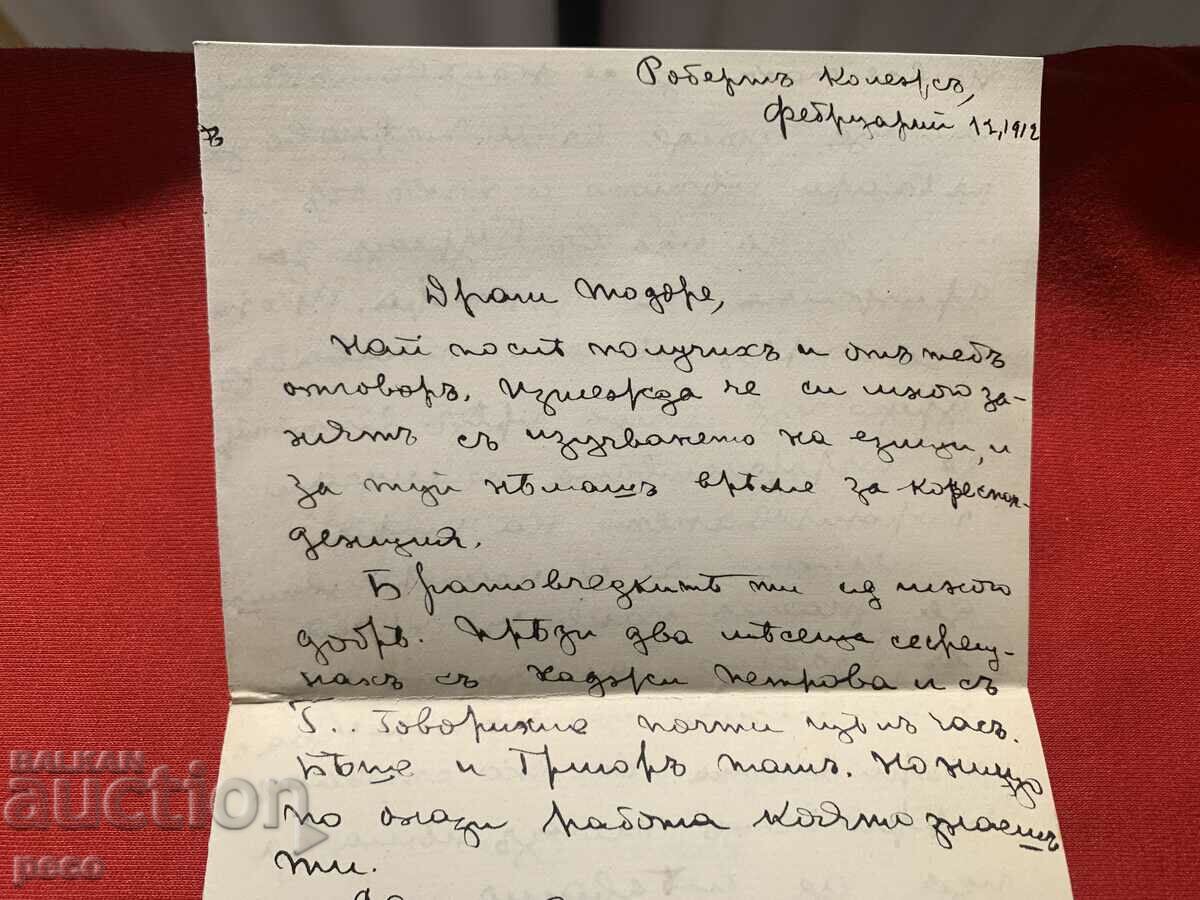 Робертъ Колежъ,
Февруарий 11, 1912
Драги Тодоре,
Най послѣ получихъ и отъ тебъ
отговоръ. Изглежда че си много за-
нятъ съ изучването на езици, и
за туй нѣмашъ врѣме за кореспон-
денция.
Братовчедкитѣ ти сѫ много
добрѣ. Прѣзи два мѣсеца се срещ-
нахъ съ Хаджи Петрова и съ
Б.. Говорихме почти цѣлъ часъ.
Бѣше и Григоръ тамъ. Но нищо
по онази работа която знаешъ
ти.
BALKAN
auction
peco